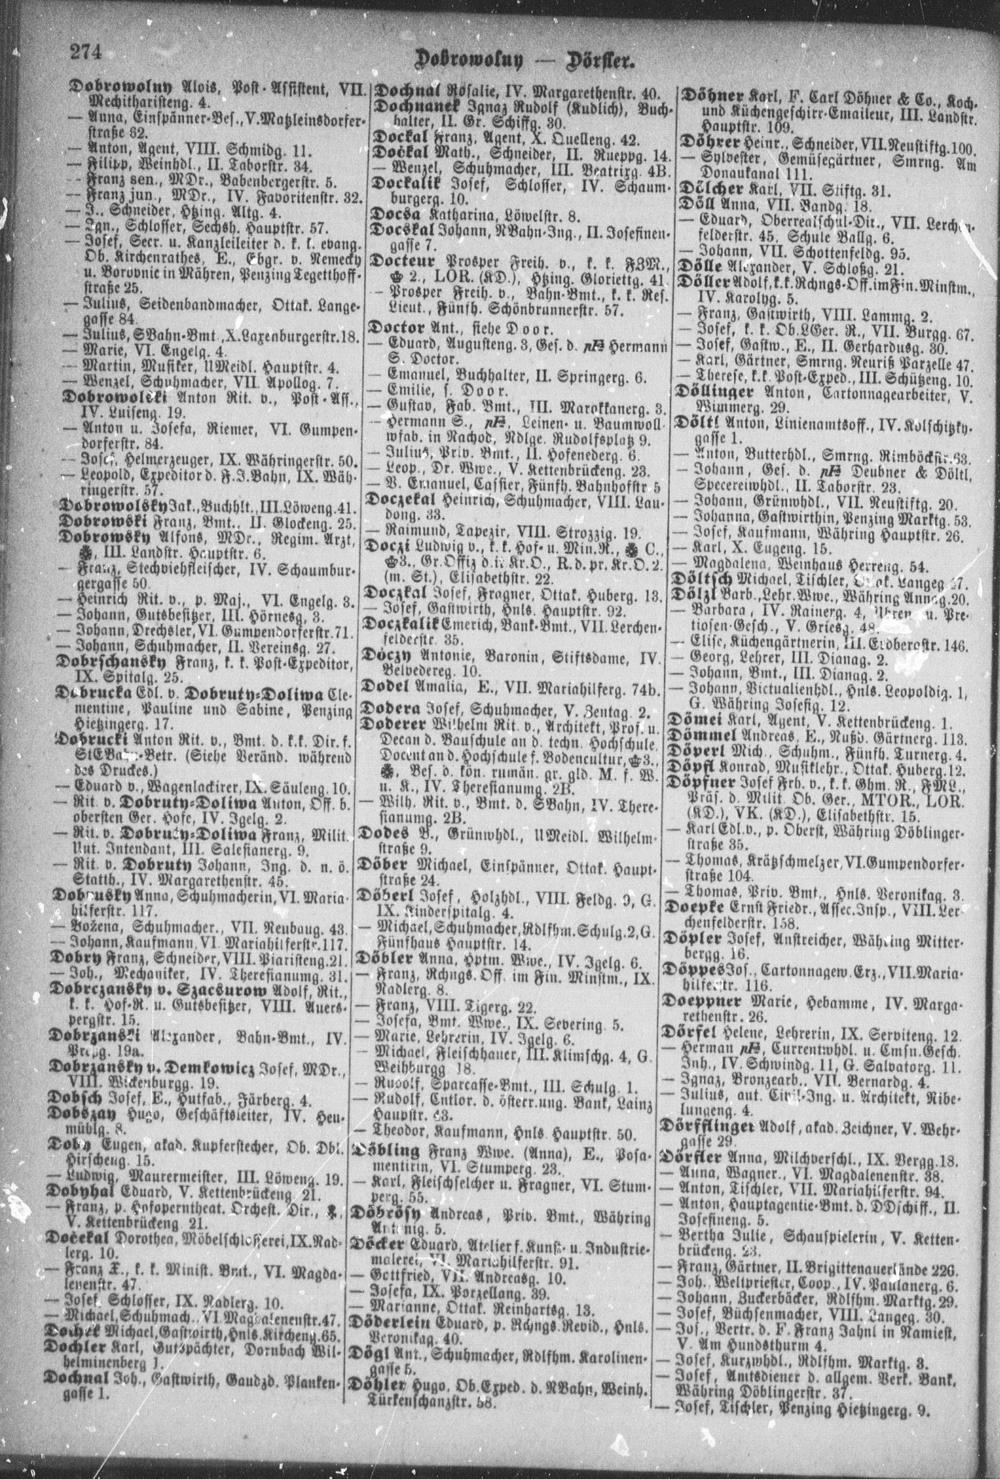 274
Dobrowolny — Dörfler.
Dobrowolny Alois, Post-Assistent, VII.
Mechitharisteng. 4.
— Anna, Einspänner-Bes., V. Matzleinsdorfer-
straße 82.
— Anton, Agent, VIII. Schmidg. 11.
— Filipp, Weinhdl., II. Taborstr. 34.
— Franz sen., MDr., Babenbergerstr. 5.
— Franz jun., MDr., IV. Favoritenstr. 32.
— J., Schneider, Htzing. Altg. 4.
— Ign., Schlosser, Sechsh. Hauptstr. 57.
— Josef, Secr. u. Kanzleileiter d. k. k. evang.
Ob. Kirchenrathes, E., Ehgr. v. Nemecky
u. Borovnic in Mähren, Penzing Tegetthoff-
straße 25.
— Julius, Seidenbandmacher, Ottak. Lange-
gasse 84.
— Julius, SBahn-Bmt., X. Laxenburgerstr. 18.
— Marie, VI. Engelg. 4.
— Martin, Musiker, UMeidl. Hauptstr. 4.
— Wenzel, Schuhmacher, VII. Apollog. 7.
Dobrowolski Anton Rit. v., Post-Ass.,
IV. Luiseng. 19.
— Anton u. Josefa, Riemer, VI. Gumpen-
dorferstr. 84.
— Josef, Helmerzeuger, IX. Währingerstr. 50.
— Leopold, Expeditor d. F.J.Bahn, IX. Wäh-
ringerstr. 57.
Dobrowolsky Jak., Buchhlt., III. Löweng. 41.
Dobrowski Franz, Bmt., II. Glockeng. 25.
Dobrowsky Alfons, MDr., Regim. Arzt,
III. Landstr. Hauptstr. 6.
— Franz, Stechviehfleischer, IV. Schaumbur-
gergasse 50.
— Heinrich Rit. v., p. Maj., VI. Engelg. 3.
— Johann, Gutsbesitzer, III. Hörnesg. 3.
— Johann, Drechsler, VI. Gumpendorferstr. 71.
— Johann, Schuhmacher, II. Vereinsg. 27.
Dobrschansky Franz, k. k. Post-Expeditor,
IX. Spitalg. 25.
Dobrucka Edl. v. Dobruty-Doliwa Cle-
mentine, Pauline und Sabine, Penzing
Hietzingerg. 17.
Dobrucki Anton Rit. v., Bmt. d. k.k. Dir. f.
StEBahn-Betr. (Siehe Veränd. während
des Druckes.)
— Eduard v., Wagenlackirer, IX. Säuleng. 10.
— Rit. v. Dobruty-Doliwa Anton, Off. b.
obersten Ger. Hofe, IV. Igelg. 2.
— Rit. v. Dobruty-Doliwa Franz, Milit.
Unt. Intendant, III. Salesianerg. 9.
— Rit. v. Dobruty Johann, Ing. d. n. ö.
Statth., IV. Margarethenstr. 45.
Dobrusky Anna, Schuhmacherin, VI. Maria-
hilferstr. 117.
— Bozena, Schuhmacher., VII. Neubaug. 43.
— Johann, Kaufmann, VI. Mariahilferstr. 117.
Dobry Franz, Schneider, VIII. Piaristeng. 21.
— Joh., Mechaniker, IV. Theresianumg. 31.
Dobrczansky v. Szacsurow Adolf, Rit.,
k. k. Hof-R. u. Gutsbesitzer, VIII. Auers-
pergstr. 15.
Dobrzanski Alexander, Bahn-Bmt., IV.
19a.
Dobrzansky v. Demkowicz Josef, MDr.,
VIII. Wickenburgg. 19.
Dobsch Josef, E., Hutfab., Färberg. 4.
Dobszay Hugo, Geschäftsleiter, IV. Heu-
mühlg. 8.
Doby Eugen, akad. Kupferstecher, Ob. Dbl.
Hirscheng. 15.
— Ludwig, Maurermeister, III. Löweng. 19.
Dobyhal Eduard, V. Kettenbrückeng. 21.
— Franz, p. Hofoperntheat. Orchest. Dir.,
V. Kettenbrückeng. 21.
Dočekal Dorothea, Möbelschlosserei, IX. Nad-
lerg. 10.
— Franz X., k. k. Minist. Bmt., VI. Magda-
lenenstr. 47.
— Josef, Schlosser, IX. Nadlerg. 10.
— Michael, Schuhmach., VI. Magdalenenstr. 47.
Michael, Gastwirth, Hnls. Kircheng. 65.
Dochler Karl, Gutspächter, Dornbach Wil-
helminenberg 1.
Dochnal Joh., Gastwirth, Gaudzd. Planken-
gasse 1.
Dochnal Rosalie, IV. Margarethenstr. 40.
Dochnanek Ignaz Rudolf (Kudlich), Buch-
halter, II. Gr. Schiffg. 30.
Dockal Franz, Agent, X. Quelleng. 42.
Dočkal Math., Schneider, II. Rueppg. 14.
— Wenzel, Schuhmacher, III. Beatrixg. 4B.
Dockalik Josef, Schlosser, IV. Schaum-
burgerg. 10.
Docsa Katharina, Löwelstr. 8.
Docskal Johann, NBahn-Ing., II. Josefinen-
gasse 7.
Docteur Prosper Freih. v., k. k. FZM.,
2., LOR. (KD.), Htzing. Gloriettg. 41.
— Prosper Freih. v., Bahn-Bmt., k. k. Res.
Lieut., Fünfh. Schönbrunnerstr. 57.
Doctor Ant., siehe Door.
— Eduard, Augusteng. 3, Ges. d. Hermann
S. Doctor.
— Emanuel, Buchhalter, II. Springerg. 6.
— Emilie, s. Door.
— Gustav, Fab. Bmt., III. Marokkanerg. 3.
— Hermann S., Leinen- u. Baumwoll-
wfab. in Nachod, Ndlge. Rudolfsplatz 9.
— Julius, Priv. Bmt., II. Hofenederg. 6.
— Leop., Dr. Wwe., V. Kettenbrückeng. 23.
— V. Emanuel, Cassier, Fünfh. Bahnhofstr 5
Doczekal Heinrich, Schuhmacher, VIII. Lau-
dong. 33.
— Raimund, Tapezir, VIII. Strozzig. 19.
Doczi Ludwig v., k. k. Hof- u. Min.R., C.,
3., Gr.Offiz d. it. Kr.O., R. d. pr. Kr.O. 2.
(m. St.), Elisabethstr. 22.
Doczkal Josef, Fragner, Ottak. Huberg. 13.
— Josef, Gastwirth, Hnls. Hauptstr. 92.
Doczkalik Emerich, Bank-Bmt., VII. Lerchen-
felderstr. 35.
Dóczy Antonie, Baronin, Stiftsdame, IV.
Belvedereg. 10.
Dodel Amalia, E., VII. Mariahilferg. 74b.
Dodera Josef, Schuhmacher, V. Zentag. 2.
Doderer Wilhelm Rit. v., Architekt, Prof. u.
Decan d. Bauschule an d. techn. Hochschule,
Docent an d. Hochschule f. Bodencultur, 3.,
Bes. d. kön. rumän. gr. gld. M. f. W.
u. K., IV. Theresianumg. 2B.
— Wilh. Rit. v., Bmt. d. SBahn, IV. There-
sianumg. 2B.
Dodes B., Grünwhdl., UMeidl. Wilhelm-
straße 9.
Döber Michael, Einspänner, Ottak. Haupt-
straße 24.
Döberl Josef, Holzhdl., VIII. Feldg. 9, G.
IX. Kinderspitalg. 4.
— Michael, Schuhmacher, Rdlfhm. Schulg. 2, G.
Fünfhaus Hauptstr. 14.
Döbler Anna, Hptm. Wwe., IV. Igelg. 6.
— Franz, Rchngs. Off. im Fin. Minstm., IX.
Nadlerg. 8.
— Franz, VIII. Tigerg. 22.
— Josefa, Bmt. Wwe., IX. Severing. 5.
— Marie, Lehrerin, IV. Igelg. 6.
— Michael, Fleischhauer, III. Klimschg. 4, G.
Weihburgg 18.
— Rudolf, Sparcasse-Bmt., III. Schulg. 1.
— Rudolf, Cntlor. d. österr.ung. Bank, Lainz
Hauptstr.
— Theodor, Kaufmann, Hnls. Hauptstr. 50.
Döbling Franz Wwe. (Anna), E., Posa-
mentirin, VI. Stumperg. 23.
— Karl, Fleischselcher u. Fragner, VI. Stum-
perg. 55.
Döbrösy Andreas, Priv. Bmt., Währing
5.
Döcker Eduard, Atelier f. Kunst- u. Industrie-
malerei, VI. Mariahilferstr. 91.
— Gottfried, VII. Andreasg. 10.
— Josefa, IX. Porzellang. 39.
— Marianne, Ottak. Reinhartsg. 13.
Döderlein Eduard, p. Rchngs. Revid., Hnls.
Veronikag. 40.
Dögl Ant., Schuhmacher, Rdlfhm. Karolinen-
gasse 5.
Döhler Hugo, Ob. Exped. d. NBahn, Weinh.
Türkenschanzstr. 58.
Döhner Karl, F. Carl Döhner & Co., Koch-
und Küchengeschirr-Emaileur, III. Landstr.
Hauptstr. 109.
Döhrer Heinr., Schneider, VII. Neustiftg. 100.
— Sylvester, Gemüsegärtner, Smrng. Am
Donaukanal 111.
Dölcher Karl, VII. Stiftg. 31.
Döll Anna, VII. Bandg. 18.
— Eduard, Oberrealschul-Dit., VII. Lerchen-
felderstr. 45, Schule Ballg. 6.
— Johann, VII. Schottenfeldg. 95.
Dölle Alexander, V. Schloßg. 21.
Döller Adolf, k. k. Rchngs-Off. im Fin. Minstm.,
IV. Karolyg. 5.
— Franz, Gastwirth, VIII. Lammg. 2.
— Josef, k. k. Ob.LGer. R., VII. Burgg. 67.
— Josef, Gastw., E., II. Gerhardusg. 30.
— Karl, Gärtner, Smrng. Neuriß Parzelle 47.
— Therese, k.k. Post-Exped., III. Schützeng. 10.
Döllinger Anton, Cartonnagearbeiter, V.
Wimmerg. 29.
Döltl Anton, Linienamtsoff., IV. Kolschitzky-
gasse 1.
— Anton, Butterhdl., Smrng. Rimböckstr. 63.
— Johann, Ges. d. Deubner & Döltl,
Specereiwhdl., II. Taborstr. 23.
— Johann, Grünwhdl., VII. Neustiftg. 20.
— Johanna, Gastwirthin, Penzing Marktg. 53.
— Josef, Kaufmann, Währing Hauptstr. 26.
— Karl, X. Eugeng. 15.
— Magdalena, Weinhaus Herreng. 54.
Döltsch Michael, Tischler, Ottak. Langeg
Dölzl Barb., Lehr. Wwe., Währing Annag. 20.
— Barbara, IV. Rainerg. 4, Uhren u. Pre-
tiosen-Gesch., V. Griesg. 48.
— Elise, Küchengärtnerin, III. Erdbergstr. 146.
— Georg, Lehrer, III. Dianag. 2.
— Johann, Bmt., III. Dianag. 2.
— Johann, Victualienhdl., Hnls. Leopoldig. 1,
G. Währing Josefig. 12.
Dömei Karl, Agent, V. Kettenbrückeng. 1.
Dömmel Andreas, E., Nußd. Gärtnerg. 113.
Döperl Mich., Schuhm., Fünfh. Turnerg. 4.
Döpfl Konrad, Musiklehr., Ottak. Huberg. 12.
Döpfner Josef Frh. v., k.k. Ghm. R., FML.,
Präs. d. Milit. Ob. Ger., MTOR., LOR.
(KD.), VK. (KD.), Elisabethstr. 15.
— Karl Edl. v., p. Oberst, Währing Döblinger-
straße 35.
— Thomas, Krätzschmelzer, VI. Gumpendorfer-
straße 104.
— Thomas, Priv. Bmt., Hnls. Veronikag. 3.
Doepke Ernst Friedr., Assec. Insp., VIII. Ler-
chenfelderstr. 158.
Döpler Josef, Anstreicher, Währing Mitter-
bergg. 16.
Döppes Jos., Cartonnagew. Erz., VII. Maria-
hilferstr. 116.
Doeppner Marie, Hebamme, IV. Marga-
rethenstr. 26.
Dörfel Helene, Lehrerin, IX. Serviteng. 12.
— Herman, Currentwhdl. u. Cmsn. Gesch.
Inh., IV. Schwindg. 11, G. Salvatorg. 11.
— Ignaz, Bronzearb., VII. Bernardg. 4.
— Julius, aut. Civil-Ing. u. Architekt, Nibe-
lungeng. 4.
Dörfflinger Adolf, akad. Zeichner, V. Wehr-
gasse 29.
Dörfler Anna, Milchverschl., IX. Bergg. 18.
— Anna, Wagner., VI. Magdalenenstr. 38.
— Anton, Tischler, VII. Mariahilferstr. 94.
— Anton, Hauptagentie-Bmt. d. DDschiff., II.
Josefineng. 5.
— Bertha Julie, Schauspielerin, V. Ketten-
brückeng. 23.
— Franz, Gärtner, II. Brigittenauerlände 226.
— Joh., Weltpriester, Coop., IV. Paulanerg. 6.
— Johann, Zuckerbäcker, Rdlfhm. Marktg. 29.
— Josef, Büchsenmacher, VIII. Langeg. 30.
— Jos., Vertr. d. F. Franz Jahnl in Namiest,
V. Am Hundsthurm 4.
— Josef, Kurzwhdl., Rdlfhm. Marktg. 3.
— Josef, Amtsdiener d. allgem. Verk. Bank,
Währing Döblingerstr. 37.
— Josef, Tischler, Penzing Hietzingerg. 9.